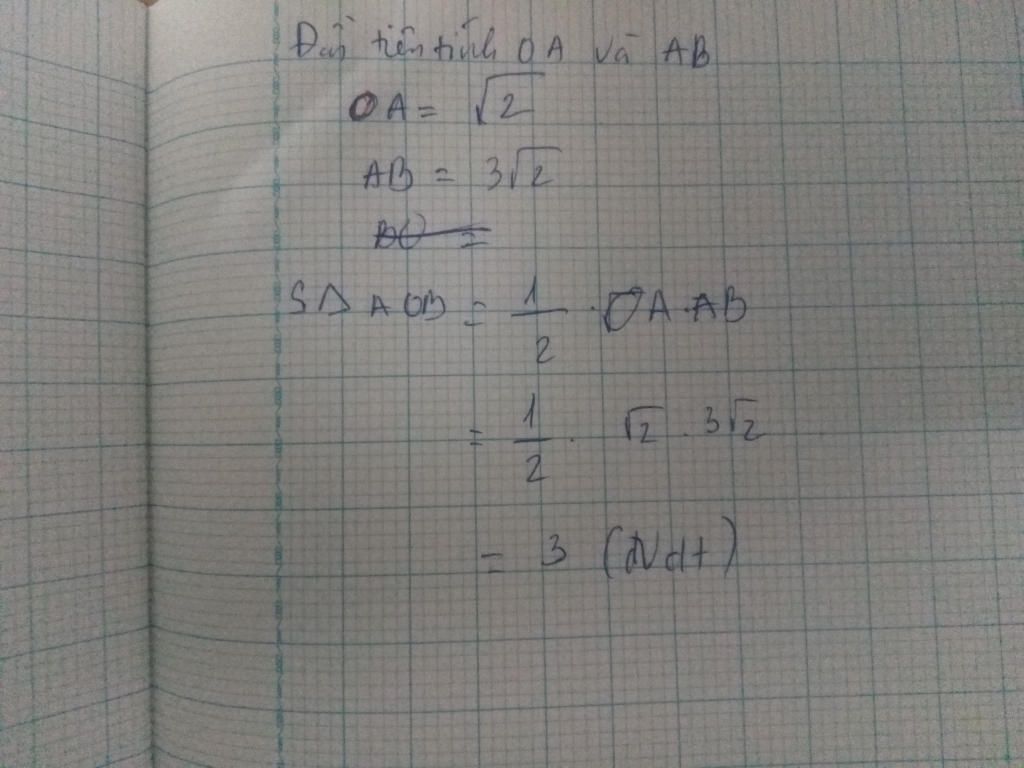 Đầu tiên tính OA và AB
OA = √2
AB = 3√2
BO =
SΔAOB = 1/2 · OA · AB
= 1/2 · √2 · 3√2
= 3 (đvdt)